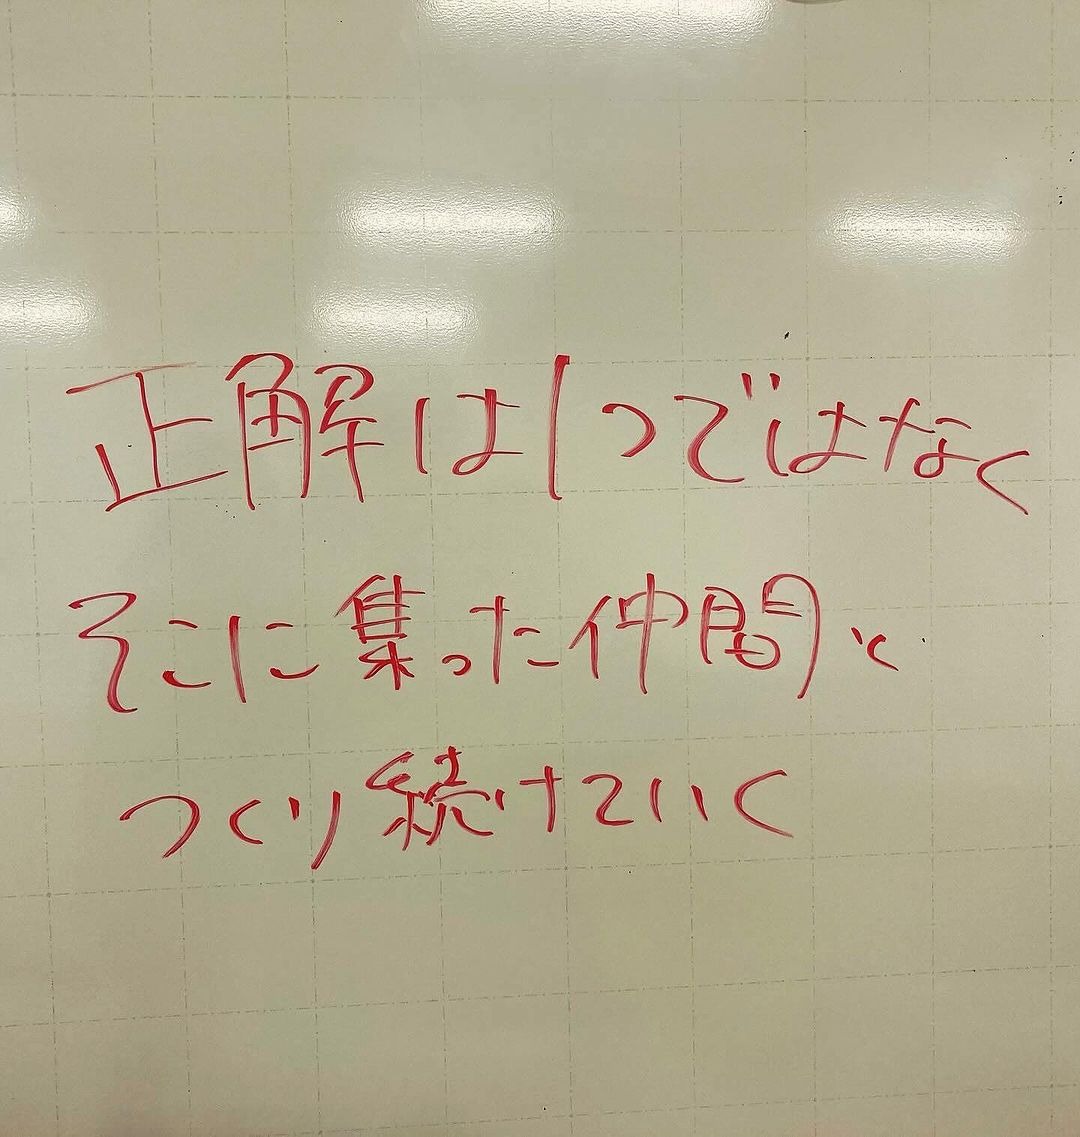 正解は1つではなく
そこに集った仲間と
つくり続けていく